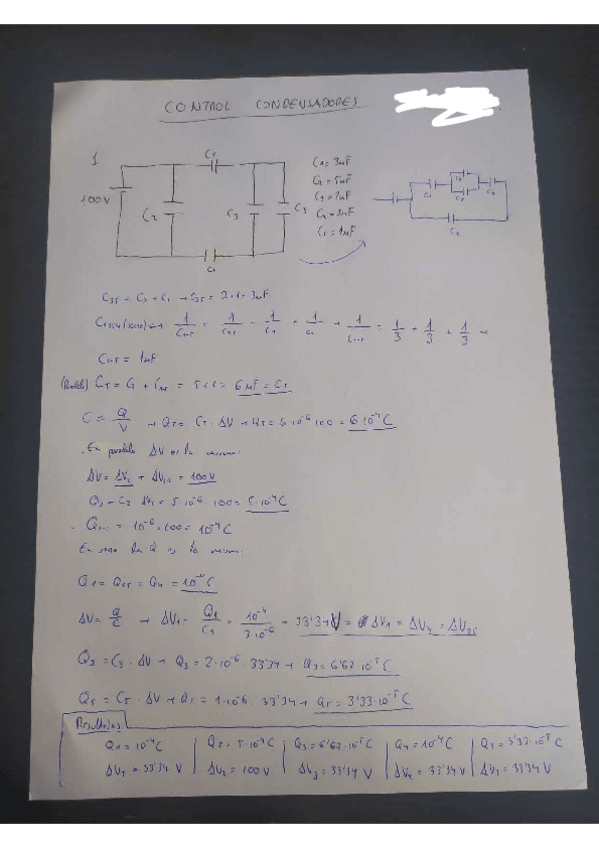 CONTROL CONDENSADORES
1
C1
100V
C2
C3
C5
C4
C1 = 3μF
C2 = 5μF
C3 = 2μF
C4 = 3μF
C5 = 1μF
C35 = C3 + C5 → C35 = 2+1 = 3μF
1/C35 + 1/C1 + 1/C4 → 1/3 + 1/3 + 1/3 →
= 1μF
(Paralelo) CT = C2 + = 5+1 = 6μF = CT
C = Q/V → QT = CT · ΔV → QT = 6·10⁻⁶·100 = 6·10⁻⁴ C
· En paralelo ΔV es la misma:
ΔV = ΔV2 = = 100V
Q2 = C2 · = 5·10⁻⁶ · 100 = 5·10⁻⁴ C
= 10⁻⁶·100 = 10⁻⁴ C
En serie la Q es la misma:
Q1 = Q35 = Q4 = 10⁻⁴ C
ΔV = Q/C → ΔV1 = Q1/C1 = 10⁻⁴/3·10⁻⁶ = 33'34V = ΔV1 = ΔV4 = ΔV35
Q3 = C3 · ΔV → Q3 = 2·10⁻⁶ · 33'34 → Q3 = 6'67·10⁻⁵ C
Q5 = C5 · ΔV → Q5 = 1·10⁻⁶ · 33'34 → Q5 = 3'33·10⁻⁵ C
Resultados
Q1 = 10⁻⁴ C | Q2 = 5·10⁻⁴ C | Q3 = 6'67·10⁻⁵ C | Q4 = 10⁻⁴ C | Q5 = 3'33·10⁻⁵ C
ΔV1 = 33'34 V | ΔV2 = 100 V | ΔV3 = 33'34 V | ΔV4 = 33'34 V | ΔV5 = 33'34 V